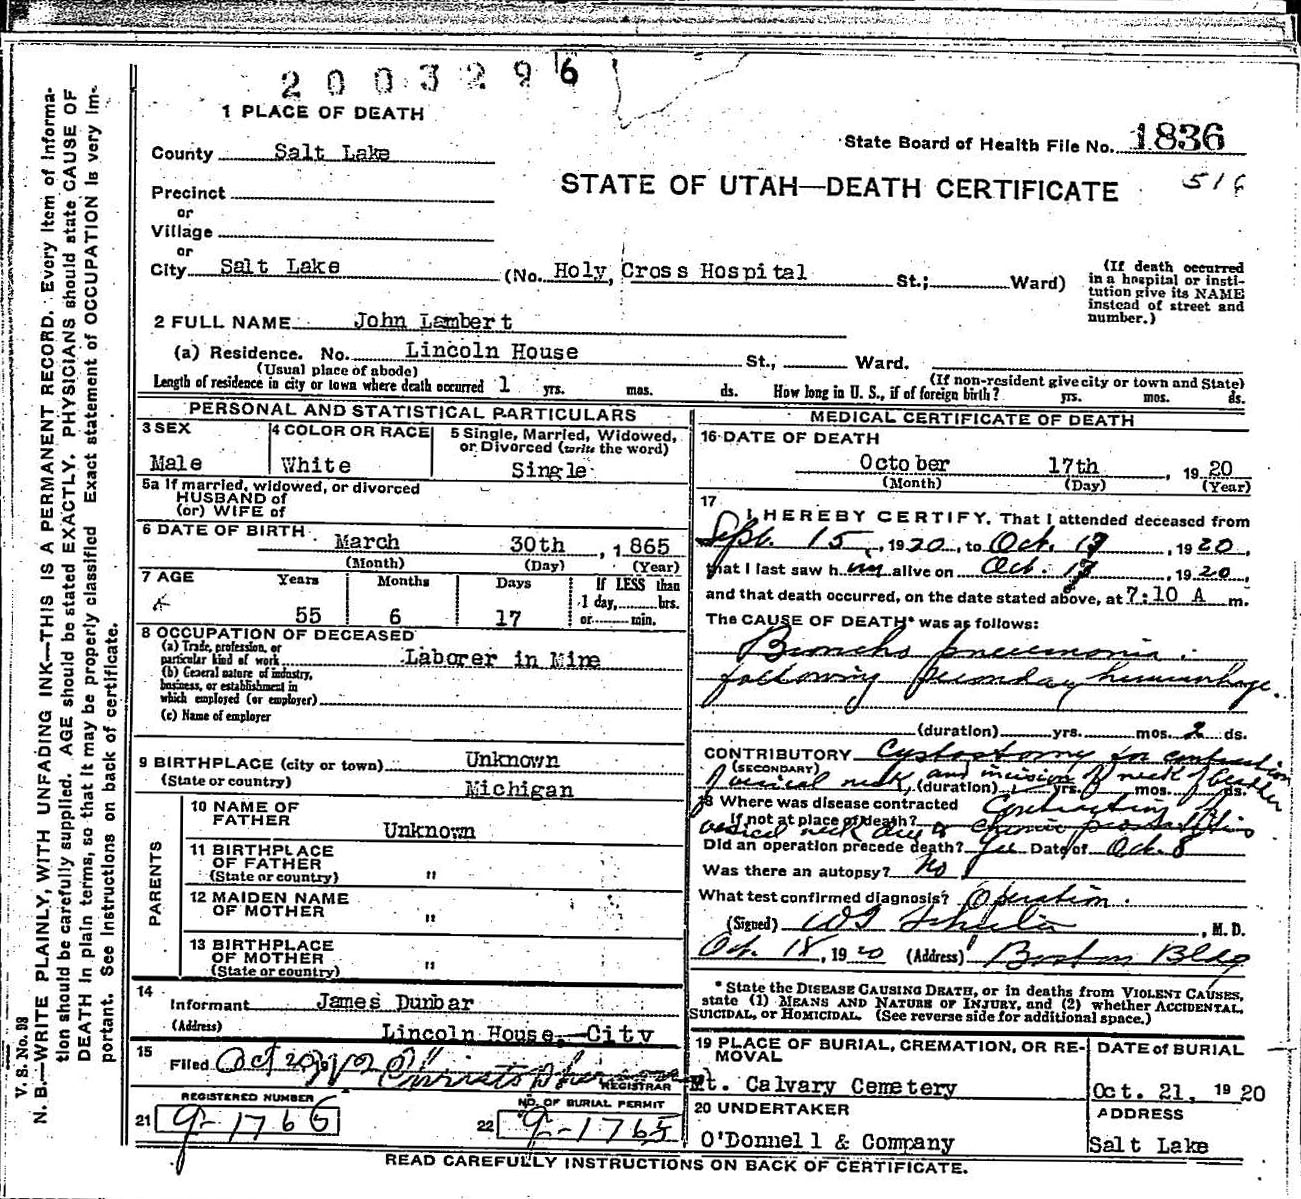 2003296
1 PLACE OF DEATH
State Board of Health File No. 1836
County Salt Lake
516
STATE OF UTAH—DEATH CERTIFICATE
Precinct
or
Village
or
City Salt Lake (No. Holy Cross Hospital St.; Ward)
(If death occurred in a hospital or institution give its NAME instead of street and number.)
2 FULL NAME John Lambert
(a) Residence. No. Lincoln House St., Ward.
(Usual place of abode) (If non-resident give city or town and State)
Length of residence in city or town where death occurred 1 yrs. mos. ds. How long in U. S., if of foreign birth? yrs. mos. ds.
PERSONAL AND STATISTICAL PARTICULARS
3 SEX 4 COLOR OR RACE 5 Single, Married, Widowed, or Divorced (write the word)
Male White Single
5a If married, widowed, or divorced
HUSBAND of
(or) WIFE of
6 DATE OF BIRTH
March 30th, 1865
(Month) (Day) (Year)
7 AGE Years Months Days If LESS than
1 day, hrs.
55 6 17 or min.
8 OCCUPATION OF DECEASED
(a) Trade, profession, or
particular kind of work Laborer in Mine
(b) General nature of industry,
business, or establishment in
which employed (or employer)
(c) Name of employer
9 BIRTHPLACE (city or town) Unknown
(State or country) Michigan
PARENTS
10 NAME OF
FATHER Unknown
11 BIRTHPLACE
OF FATHER
(State or country) "
12 MAIDEN NAME
OF MOTHER "
13 BIRTHPLACE
OF MOTHER
(State or country) "
14
Informant James Dunbar
(Address) Lincoln House, City
15
Filed Oct 20 Christopherson
REGISTRAR
REGISTERED NUMBER NO. OF BURIAL PERMIT
21 9-1766 22 9-1765
MEDICAL CERTIFICATE OF DEATH
16 DATE OF DEATH
October 17th, 1920
(Month) (Day) (Year)
17
I HEREBY CERTIFY, That I attended deceased from
Sept. 15, 1920, to Oct. 17, 1920,
that I last saw him alive on Oct. 17, 1920,
and that death occurred, on the date stated above, at 7:10 A m.
The CAUSE OF DEATH* was as follows:
Broncho pneumonia
following secondary hemorrhage.
(duration) yrs. mos. 2 ds.
CONTRIBUTORY Cystostomy for contraction
(SECONDARY)
of vesical neck, and incision of neck of bladder
(duration) yrs. mos. ds.
18 Where was disease contracted
If not at place of death? Contraction of
vesical neck due to chronic prostatitis
Did an operation precede death? Yes Date of Oct. 8
Was there an autopsy? No
What test confirmed diagnosis? Operation.
(Signed) W G, M. D.
Oct. 18, 1920 (Address) Boston Bldg
* State the DISEASE CAUSING DEATH, or in deaths from VIOLENT CAUSES,
state (1) MEANS AND NATURE OF INJURY, and (2) whether ACCIDENTAL,
SUICIDAL, or HOMICIDAL. (See reverse side for additional space.)
19 PLACE OF BURIAL, CREMATION, OR REMOVAL DATE of BURIAL
Mt. Calvary Cemetery Oct. 21, 1920
20 UNDERTAKER ADDRESS
O'Donnell & Company Salt Lake
READ CAREFULLY INSTRUCTIONS ON BACK OF CERTIFICATE.
V. S. No. 98
N. B.—WRITE PLAINLY, WITH UNFADING INK—THIS IS A PERMANENT RECORD. Every item of Informa-
tion should be carefully supplied. AGE should be stated EXACTLY. PHYSICIANS should state CAUSE OF
DEATH in plain terms, so that it may be properly classified. Exact statement of OCCUPATION is very Im-
portant. See instructions on back of certificate.